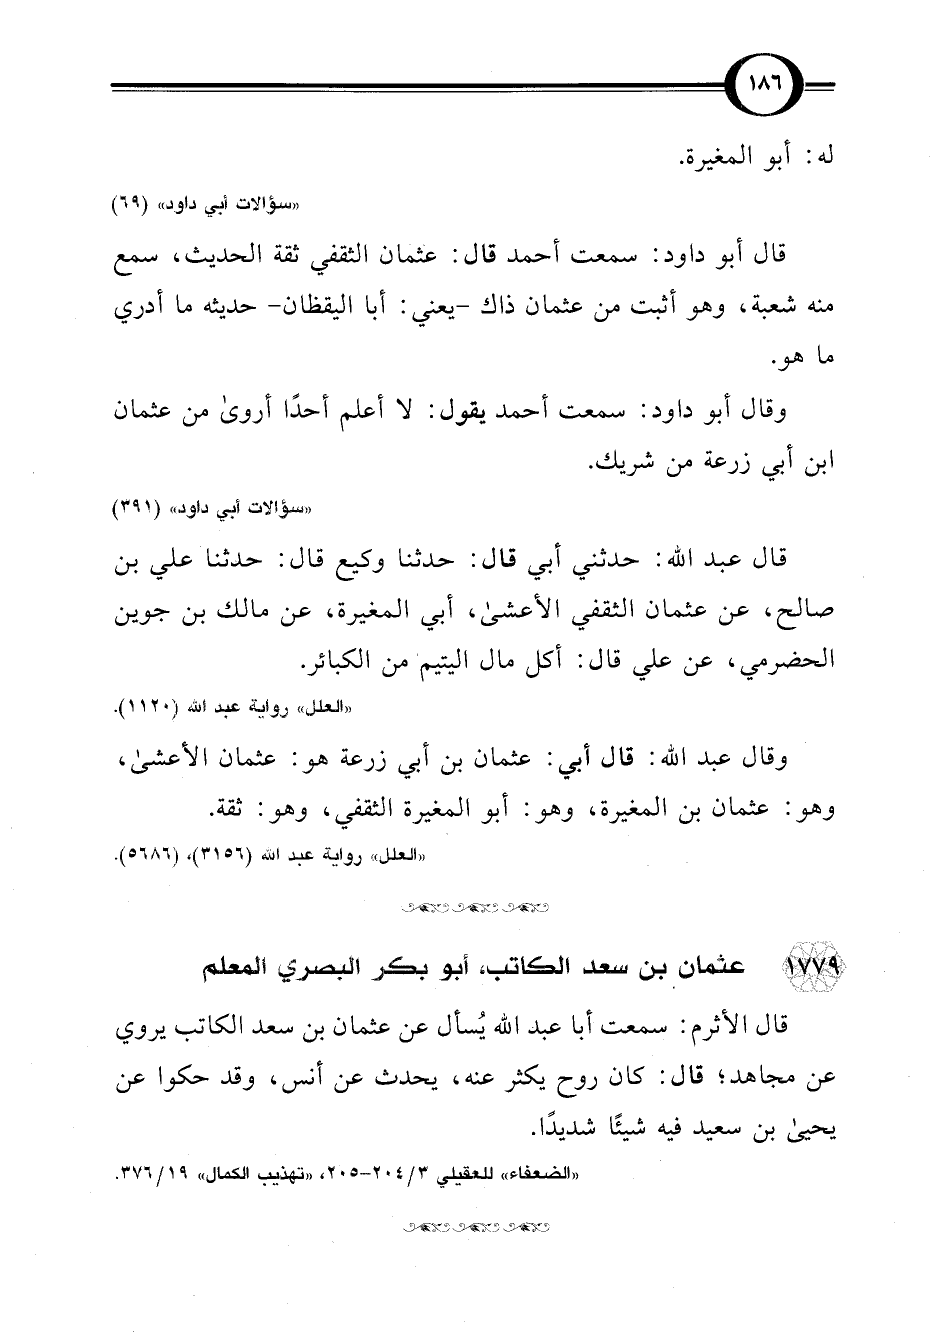 ١٨٦
له: أبو المغيرة.
«سؤالات أبي داود» (٦٩)
قال أبو داود: سمعت أحمد قال: عثمان الثقفي ثقة الحديث، سمع
منه شعبة، وهو أثبت من عثمان ذاك -يعني: أبا اليقظان- حديثه ما أدري
ما هو.
وقال أبو داود: سمعت أحمد يقول: لا أعلم أحدًا أروىٰ من عثمان
ابن أبي زرعة من شريك.
«سؤالات أبي داود» (٣٩١)
قال عبد الله: حدثني أبي قال: حدثنا وكيع قال: حدثنا علي بن
صالح، عن عثمان الثقفي الأعشىٰ، أبي المغيرة، عن مالك بن جوين
الحضرمي، عن علي قال: أكل مال اليتيم من الكبائر.
«العلل» رواية عبد الله (١١٢٠).
وقال عبد الله: قال أبي: عثمان بن أبي زرعة هو: عثمان الأعشىٰ،
وهو: عثمان بن المغيرة، وهو: أبو المغيرة الثقفي، وهو: ثقة.
«العلل» رواية عبد الله (٣١٥٦)، (٥٦٨٦).
١٧٧٩ عثمان بن سعد الكاتب، أبو بكر البصري المعلم
قال الأثرم: سمعت أبا عبد الله يُسأل عن عثمان بن سعد الكاتب يروي
عن مجاهد؛ قال: كان روح يكثر عنه، يحدث عن أنس، وقد حكوا عن
يحيىٰ بن سعيد فيه شيئًا شديدًا.
«الضعفاء» للعقيلي ٣/ ٢٠٤-٢٠٥، «تهذيب الكمال» ١٩/ ٣٧٦.